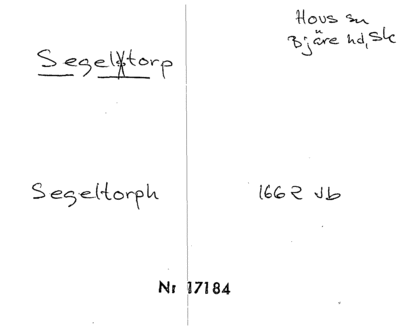 Hovs sn
Bjäre hd, Sk
Segeltorp
Segeltorph 1662 Jb
Nr 17184